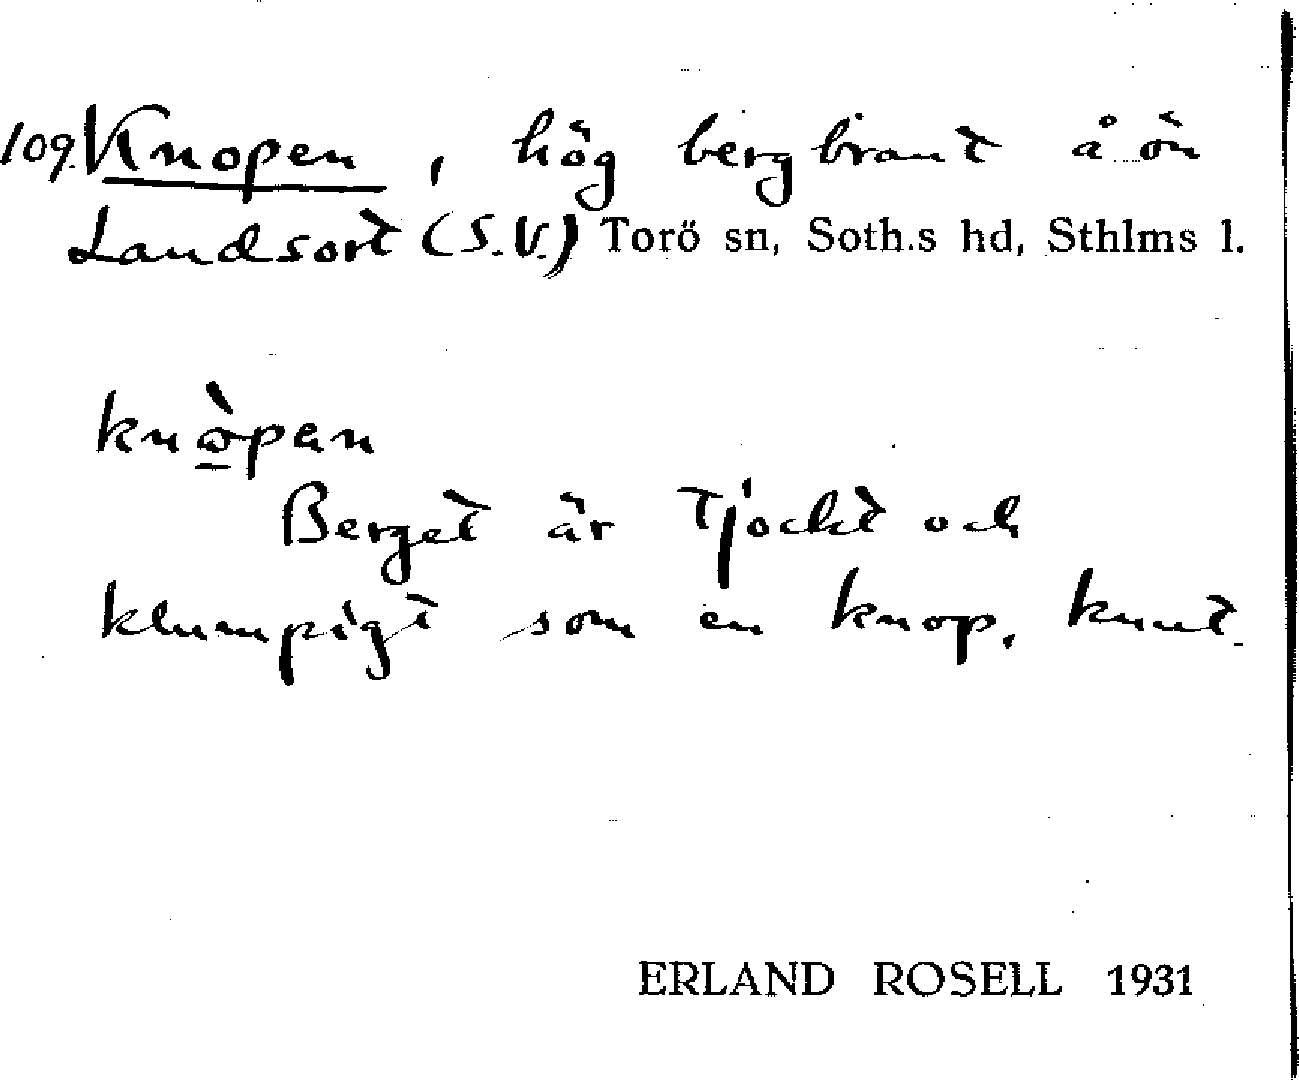 109. Knopen, hög bergbrant å ön
Landsort (S.V.) Torö sn, Soth.s hd, Sthlms l.
knòpen
Berget är tjockt och
klumpigt som en knop, knut.
ERLAND ROSELL 1931